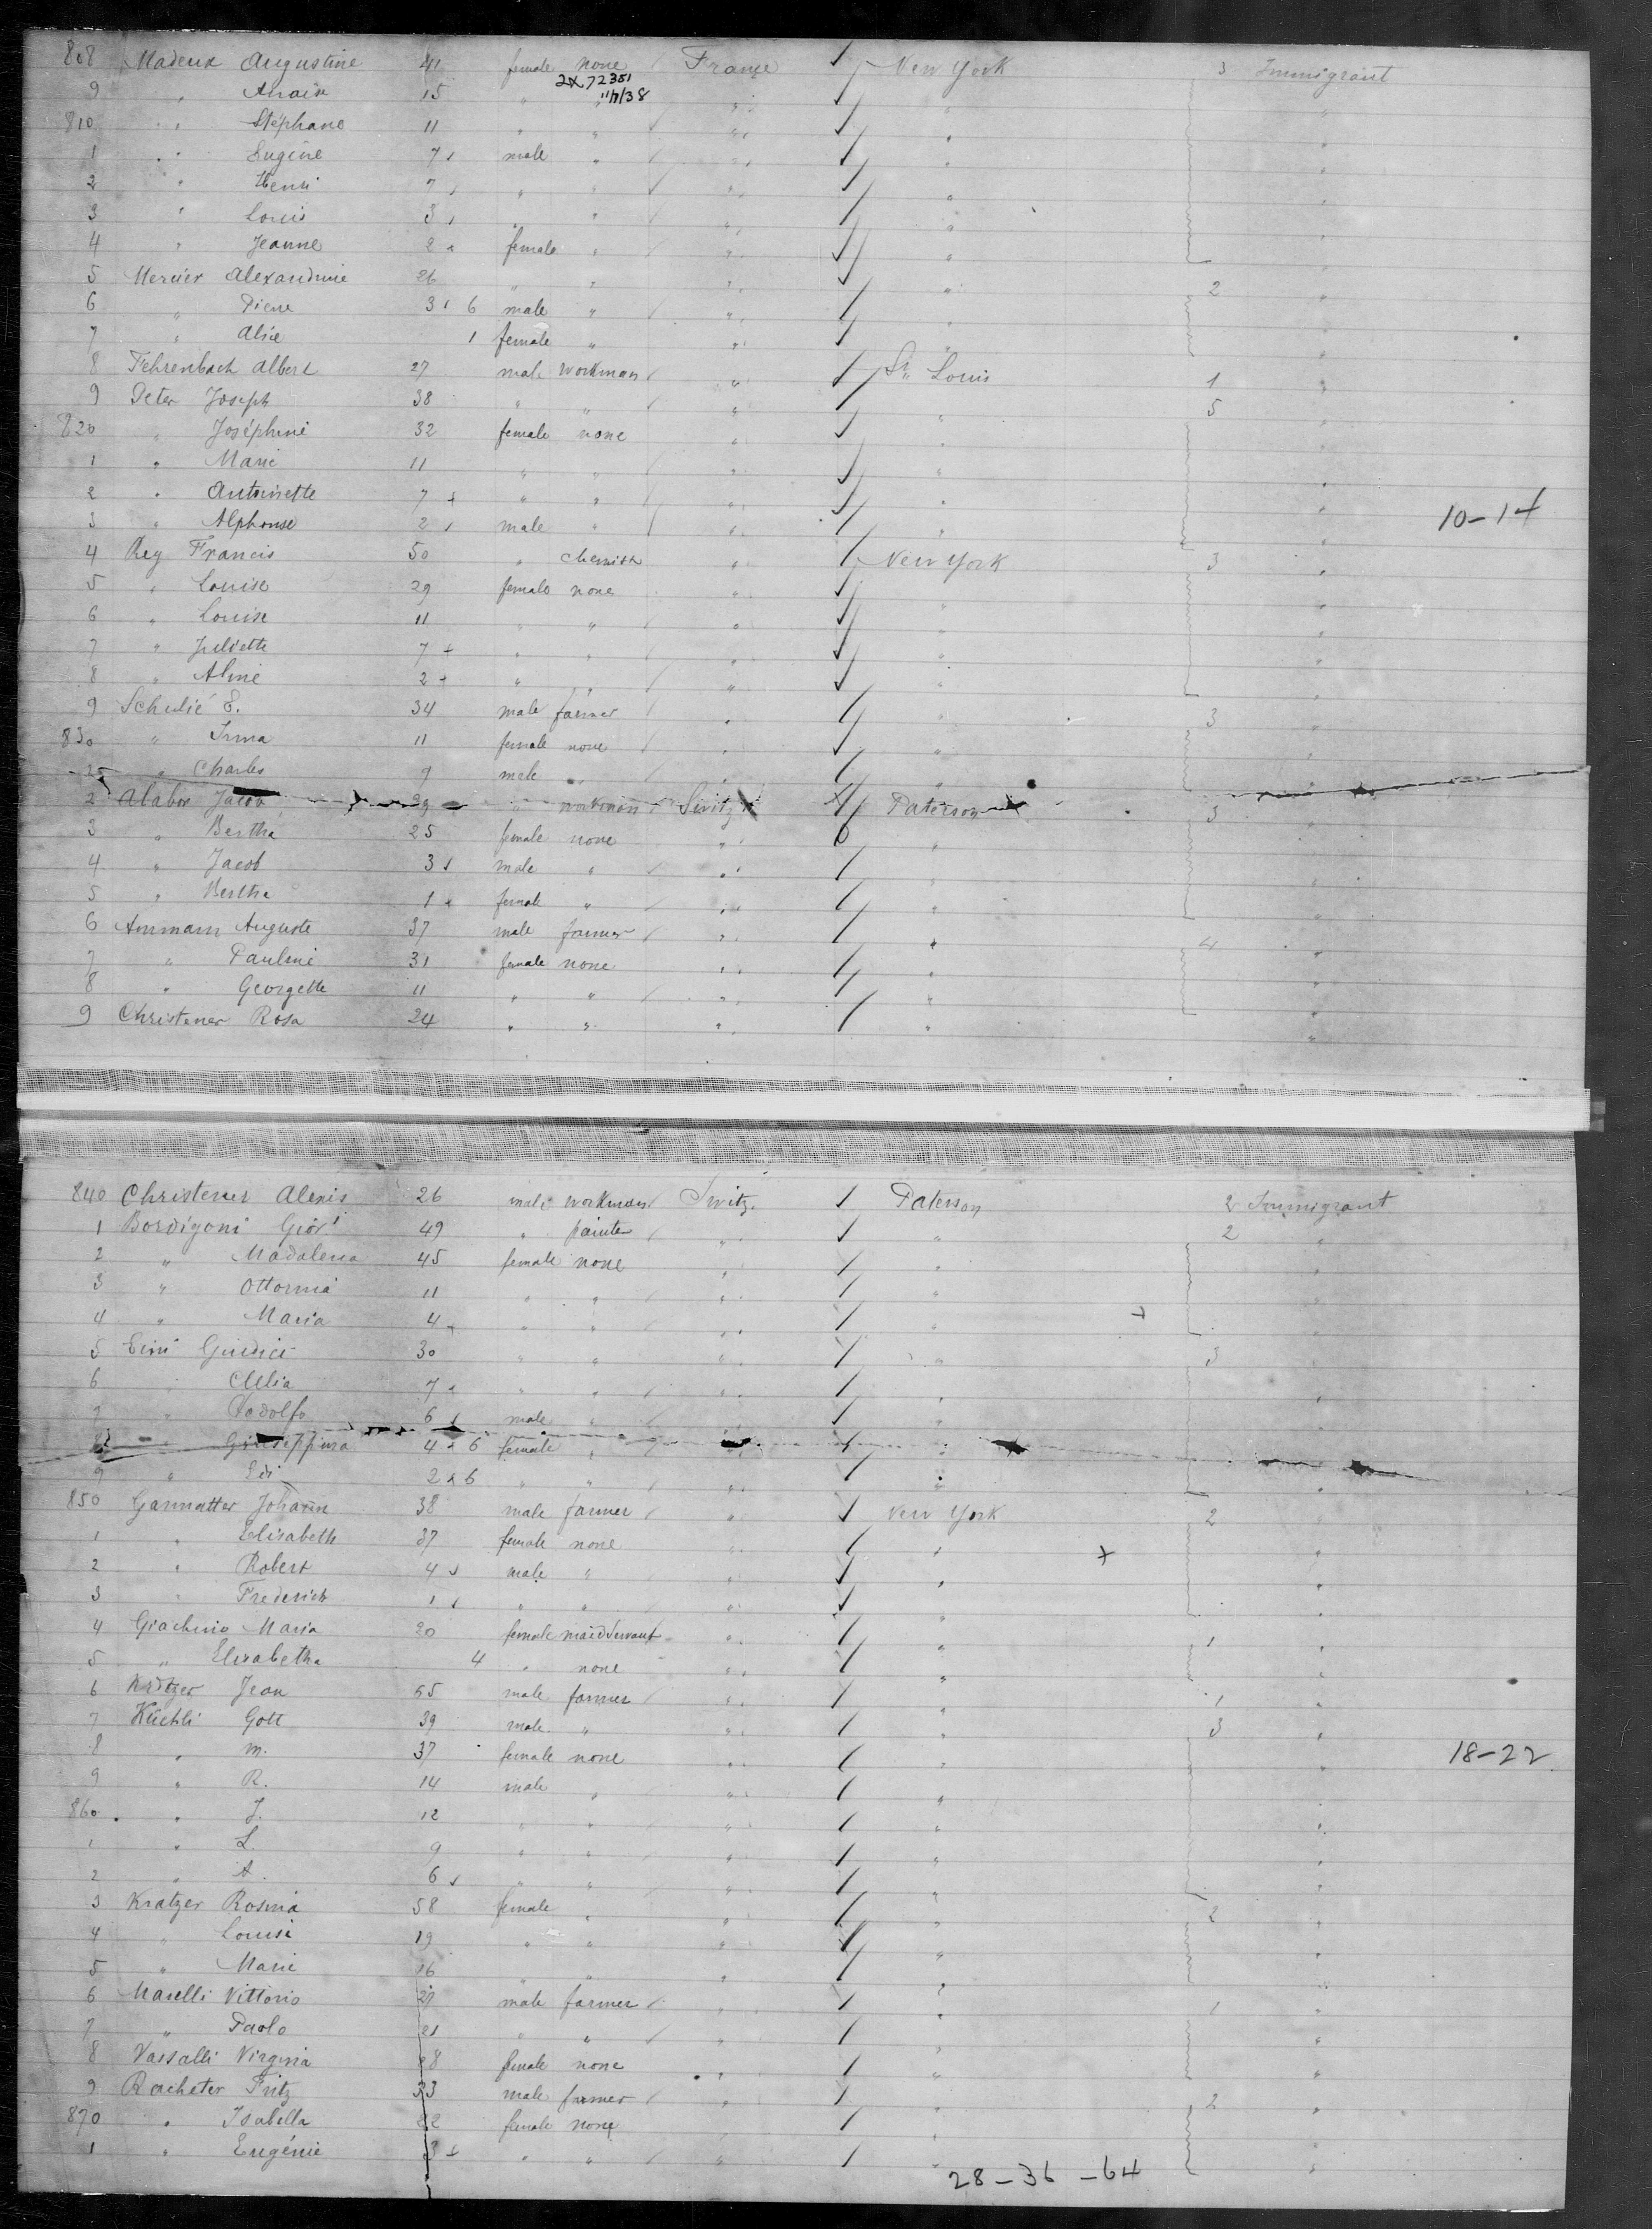 808 Madeux Augustine 41 female none France New York 3 Immigrant
2X 72381
9 " Anaïs 15 " " " " "
11/7/38
810 " Stéphane 11 " " " " "
1 " Eugène 7 male " " " "
2 " Henri 7 " " " " "
3 " Louis 3 " " " " "
4 " Jeanne 2 female " " " "
5 Mercier Alexandrine 26 " " " " 2 "
6 " Pierre 3 6 male " " " "
7 " Alice 1 female " " " "
8 Fehrenbach Albert 27 male workman " St. Louis 1 "
9 Peter Joseph 38 " " " " 5 "
820 " Joséphine 32 female none " " "
1 " Marie 11 " " " " "
2 " Antoinette 7 " " " " "
10-14
3 " Alphonse 2 male " " " "
4 Rey Francis 50 " chemist " New York 3 "
5 " Louise 29 female none " " "
6 " Louise 11 " " " " "
7 " Juliette 7 " " " " "
8 " Aline 2 " " " " "
9 Schulié E. 34 male farmer " " 3 "
830 " Irma 11 female none " " "
1 " Charles 9 male " " " "
2 Alabor Jacob 29 " workman Switz. Paterson 3 "
3 " Bertha 25 female none " " "
4 " Jacob 3 male " " " "
5 " Bertha 1 female " " " "
6 Ammann Auguste 37 male farmer " " 4 "
7 " Pauline 31 female none " " "
8 " Georgette 11 " " " " "
9 Christener Rosa 24 " " " " "
840 Christener Alexis 26 male workman Switz. Paterson 2 Immigrant
1 Bordigoni Giov. 49 " painter " " 2 "
2 " Madalena 45 female none " " "
3 " Ottorina 11 " " " " "
4 " Maria 4 " " " " "
5 Eini Giudici 30 " " " " 3 "
6 " Clelia 7 " " " " "
7 " Rodolfo 6 male " " " "
8 " Giuseppina 4 6 female " " " "
9 " Edi 2 6 " " " " "
850 Gammatter Johann 38 male farmer " New York 2 "
1 " Elisabeth 37 female none " " "
2 " Robert 4 male " " " "
3 " Frederich 1 " " " " "
4 Giachino Maria 20 female maidservant " " 1 "
5 " Elisabetha 4 " none " " "
6 Kratzer Jean 55 male farmer " " 1 "
7 Küchli Gott 39 male " " " 3 "
8 " M. 37 female none " " "
18-22
9 " R. 14 male " " " "
860 " J. 12 " " " " "
1 " L. 9 " " " " "
2 " A. 6 " " " " "
3 Kratzer Rosina 58 female " " " 2 "
4 " Louise 19 " " " " "
5 " Marie 16 " " " " "
6 Maselli Vittorio 27 male farmer " " 1 "
7 " Paolo 21 " " " " "
8 Vassalli Virginia 28 female none " " "
9 Racheter Fritz 33 male farmer " " 2 "
870 " Isabella 22 female none " " "
1 " Eugénie 3 " " " " "
28-36-64